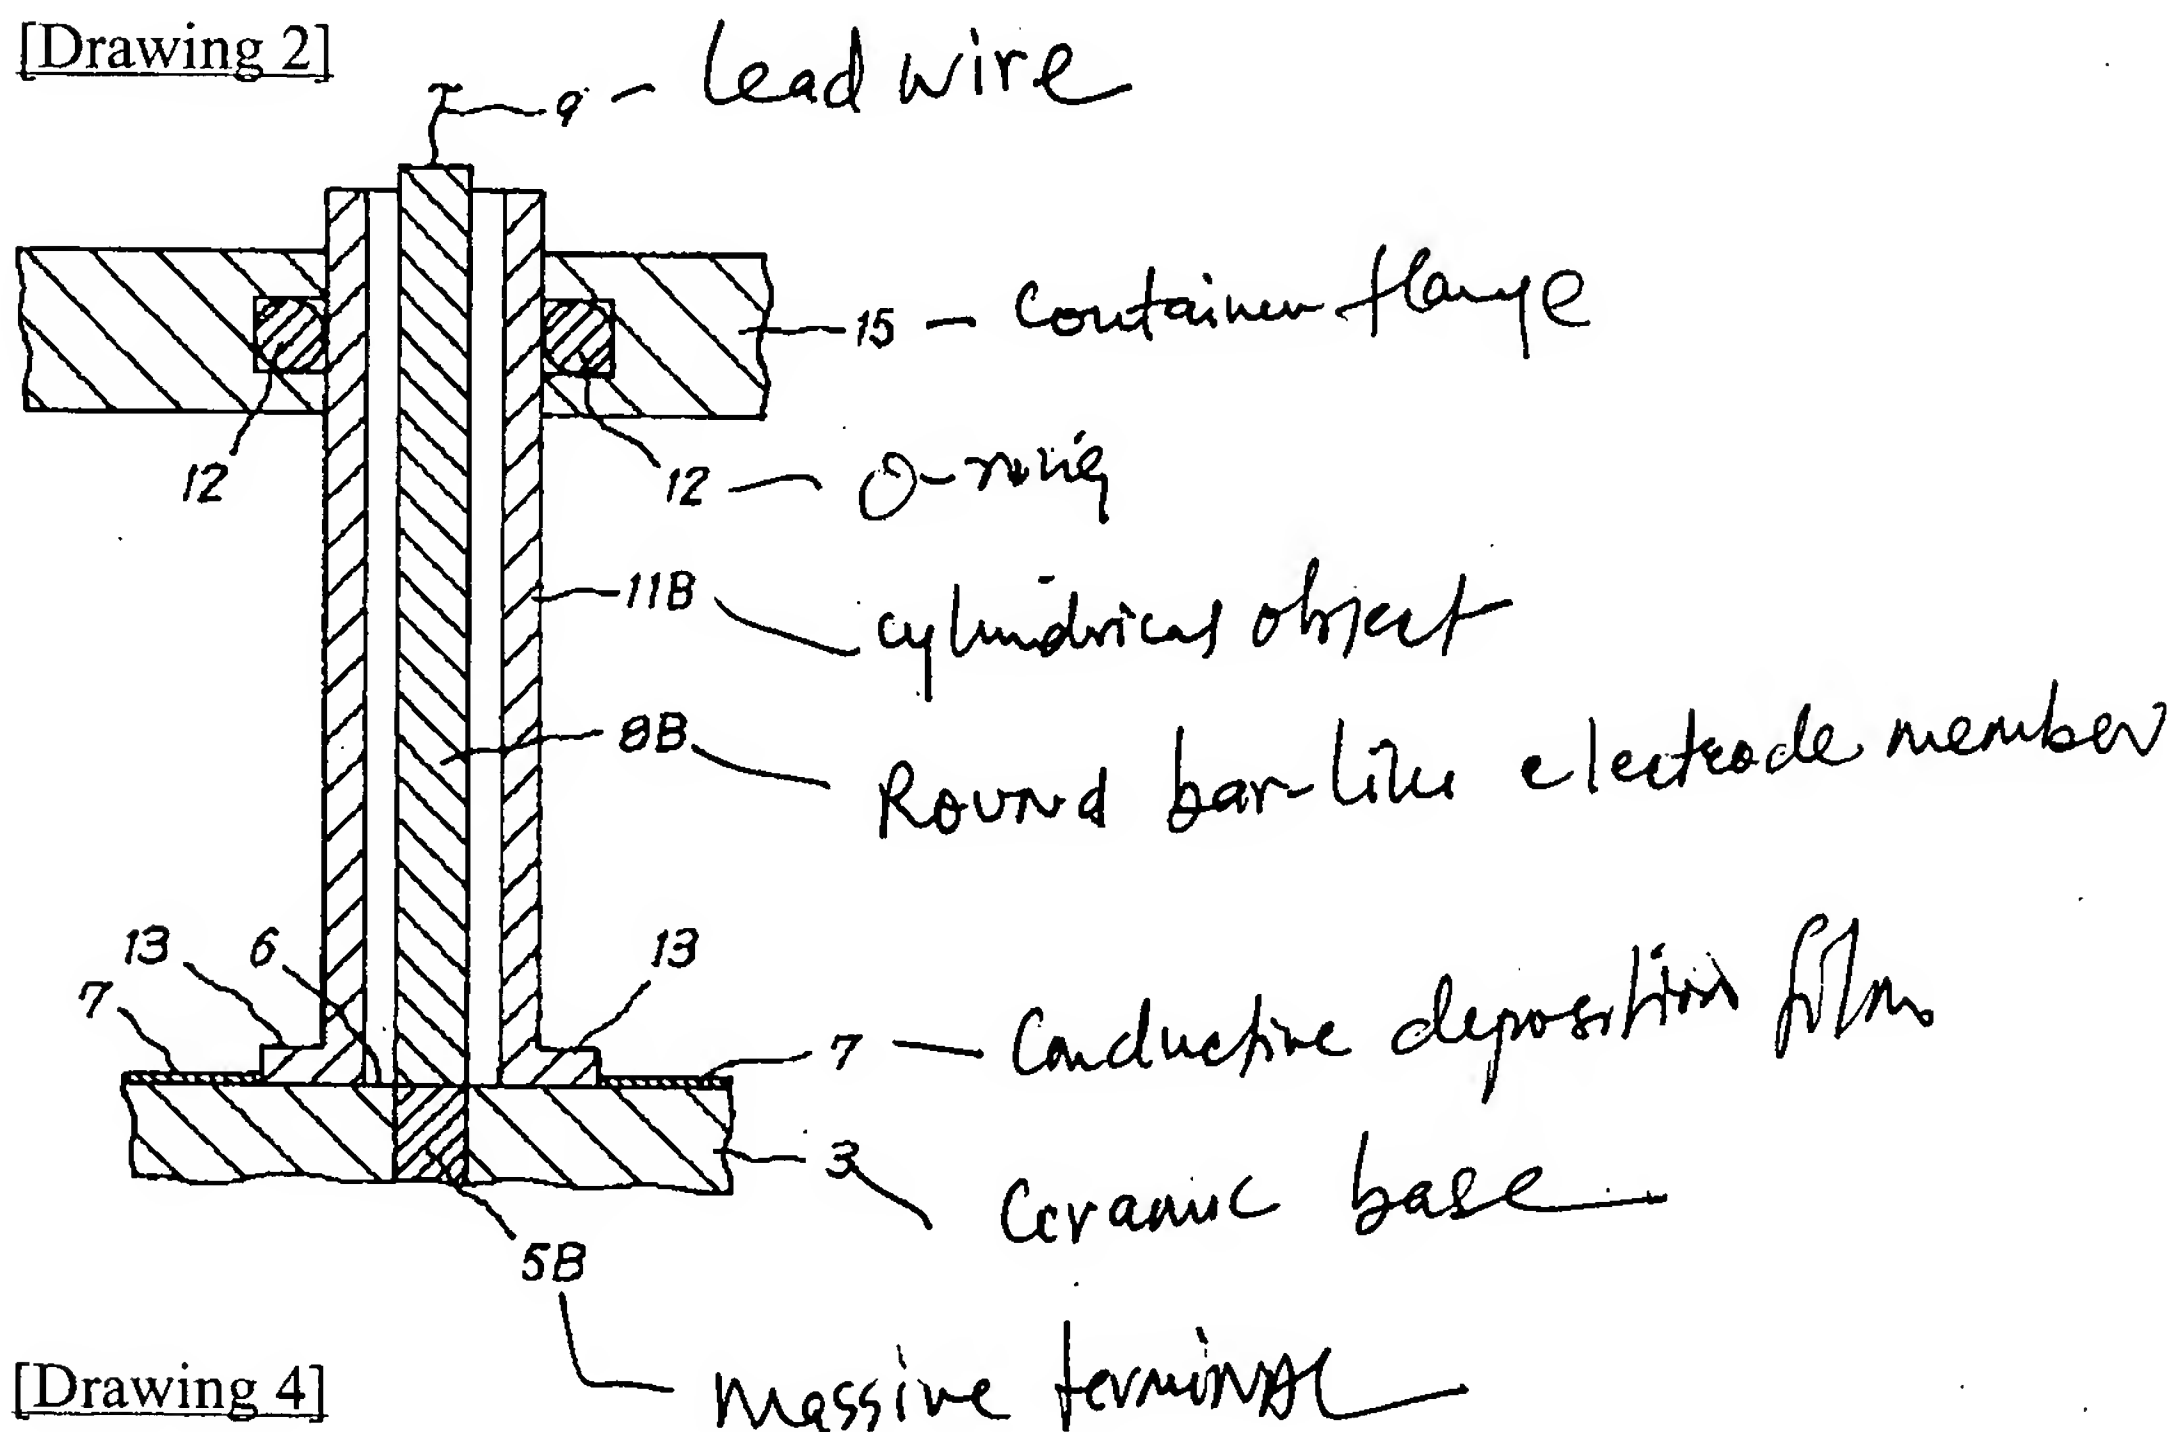 [Drawing 2]
9 - Lead wire
15 - Container flange
12 12 - O-ring
11B cylindrical object
8B Round bar-like electrode member
13 6 13
7 7 - Conductive deposition film
3 Ceramic base
5B
Massive terminal
[Drawing 4]